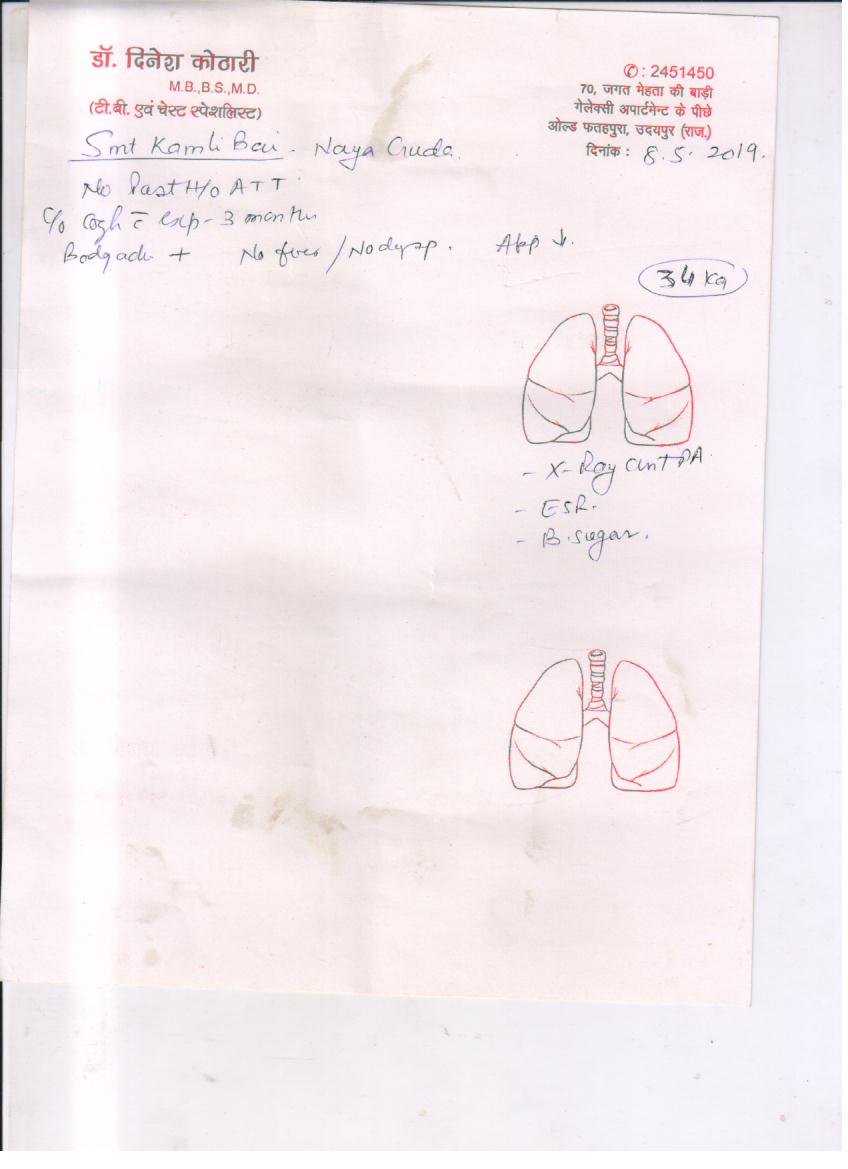 डॉ. दिनेश कोठारी
M.B.,B.S.,M.D.
(टी.बी. एवं चेस्ट स्पेशलिस्ट)
✆: 2451450
70, जगत मेहता की बाड़ी
गेलेक्सी अपार्टमेन्ट के पीछे
ओल्ड फतहपुरा, उदयपुर (राज.)
दिनांक : 8.5.2019.
Smt Kamli Bai. Naya Guda.
No Past H/o ATT
C/o cough c̄ exp - 3 months
Bodyach + No fever / No dysp. App ↓.
34 Kg
- X-Ray PA
- ESR.
- B.sugar.